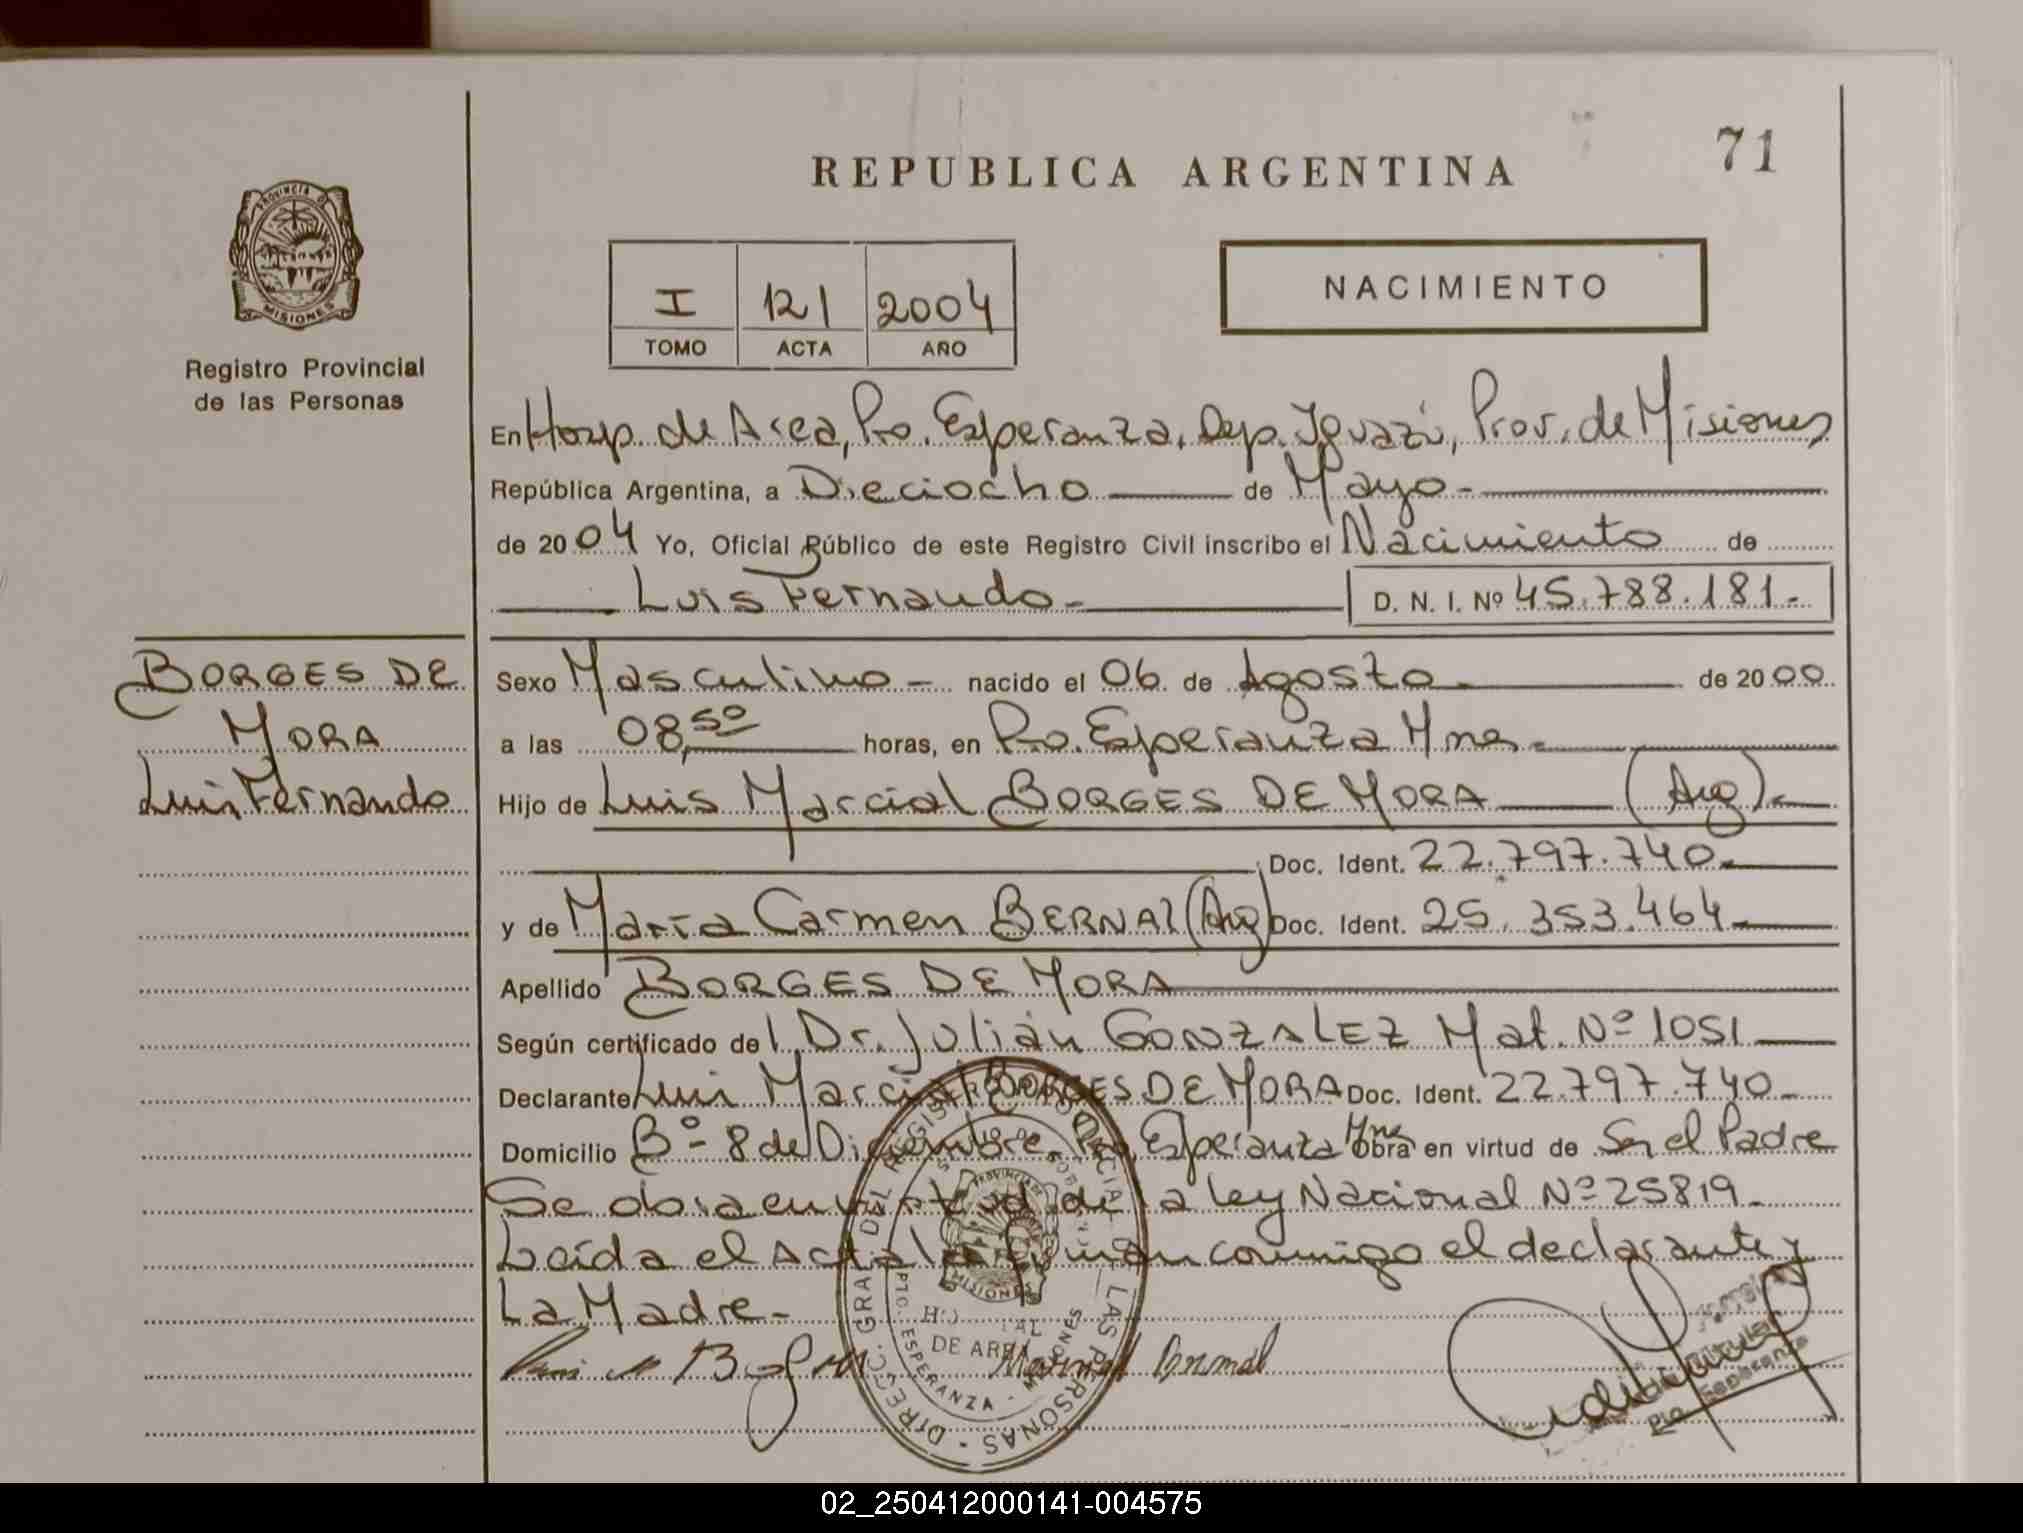 71
REPUBLICA ARGENTINA
PROVINCIA DE
MISIONES
Registro Provincial
de las Personas
I 121 2004
TOMO ACTA AÑO
NACIMIENTO
En Hosp. de Area, Pto. Esperanza, Dep. Iguazú, Prov. de Misiones
República Argentina, a Dieciocho de Mayo
de 2004 Yo, Oficial Público de este Registro Civil inscribo el Nacimiento de
Luis Fernando D. N. I. Nº 45.788.181.-
BORGES DE
MORA
Luis Fernando
Sexo Masculino nacido el 06 de Agosto de 2000
a las 08,50 horas, en Pto. Esperanza Mnes.
Hijo de Luis Marcial BORGES DE MORA (Arg).
Doc. Ident. 22.797.740.
y de María Carmen BERNAL (Arg) Doc. Ident. 25.353.464
Apellido BORGES DE MORA
Según certificado de l Dr. Julián GONZALEZ Mat. Nº 1051
Declarante Luis Marcial BORGES DE MORA Doc. Ident. 22.797.740
Domicilio Bº 8 de Diciembre, Pto. Esperanza Mnes obra en virtud de Ser el Padre
Se obra en virtud de la ley Nacional Nº 25819
Leída el Acta la firman conmigo el declarante y
La Madre
DIRECC. GRAL DEL REGISTRO PROVINCIAL DE LAS PERSONAS
PROVINCIA DE
MISIONES
HOSPITAL
DE AREA
PTO. ESPERANZA - MISIONES
Titular
Pto. Esperanza
02_250412000141-004575